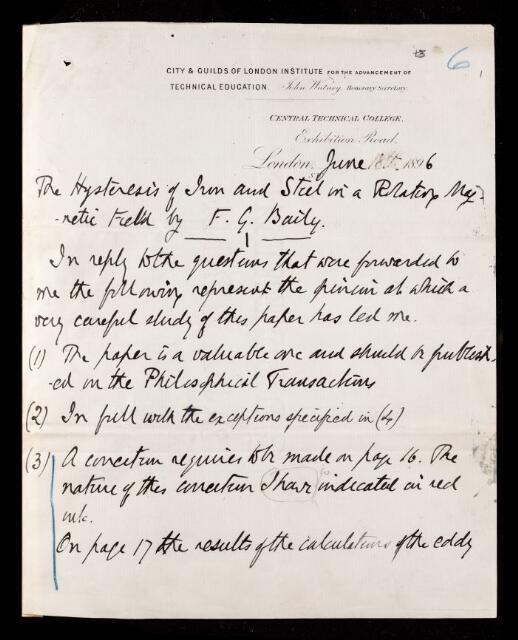 13 6
CITY & GUILDS OF LONDON INSTITUTE FOR THE ADVANCEMENT OF
TECHNICAL EDUCATION. John Watney Honorary Secretary.
CENTRAL TECHNICAL COLLEGE,
Exhibition Road,
London, June 18th 1896
The Hysteresis of Iron and Steel in a Rotating Mag-
-netic Field by F. G. Baily.
In reply to the questions that were forwarded to
me the following represent the opinion at which a
very careful study of this paper has led me.
(1) The paper is a valuable one and should be publish-
-ed in the Philosophical Transactions
(2) In full with the exceptions specified in (4)
(3) A correction requires to be made on page 16. The
nature of this correction I have indicated in red
ink.
On page 17 the results of the calculations of the eddy